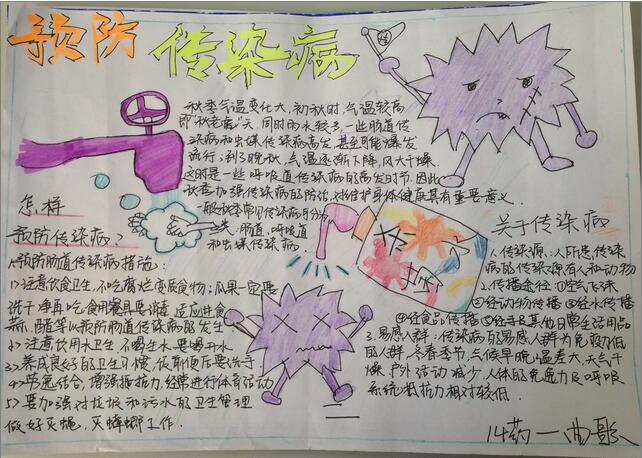 预防传染病
秋季气温变化大,初秋时,气温较高
即"秋老虎"天,同时雨水较多,一些肠道传
染病和虫媒传染病高发,甚至可能爆发
流行;到了晚秋,气温逐渐下降,风大干燥,
这时是一些呼吸道传染病的高发时节.因此
秋季加强传染病的防治,对维护身体健康具有重要意义.
一般秋季常见传染病可分为
肠道,呼吸道
和虫媒传染病.
怎样
预防传染病?
1>预防肠道传染病措施:
1>注意饮食卫生,不吃腐烂变质食物;瓜果一定要
洗干净再吃,食用餐具要消毒,适应进食
蒜、醋等以预防肠道传染病的发生
2>注意饮用水卫生,不喝生水,要喝开水
3>养成良好的卫生习惯,饭前便后要洗手
4>劳逸结合,增强抵抗力,经常进行体育活动
5>要加强对垃圾和污水的卫生管理
做好灭蝇,灭蟑螂工作.
关于传染病
1.传染源:人所患传染
病的传染源有人和动物
2.传播途径:①空气飞沫
②经动物传播 ③经水传播
④经食品传播 ⑤经手及其他日常生活用品
3.易感人群:传染病的易感人群为免疫力低
的人群,冬春季节,气候早晚温差大,天气干
燥,户外活动减少,人体的免疫力及呼吸
系统抵抗力相对较低.
14药一曲歌